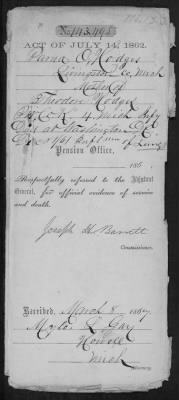 No. 143,495
ACT OF JULY 14, 1862.
O. Hodges
Livingston Co, Mich
Mother of
Theodore Hodges
K. 4 Mich
Dec 1861
Pension Office,
186 .
Respectfully referred to the Adjutant
General, for official evidence of service
and death.
Joseph H Barrett
Commissioner.
Received, March 8, 1867
L Gay
Howell
Mich
Attorney.